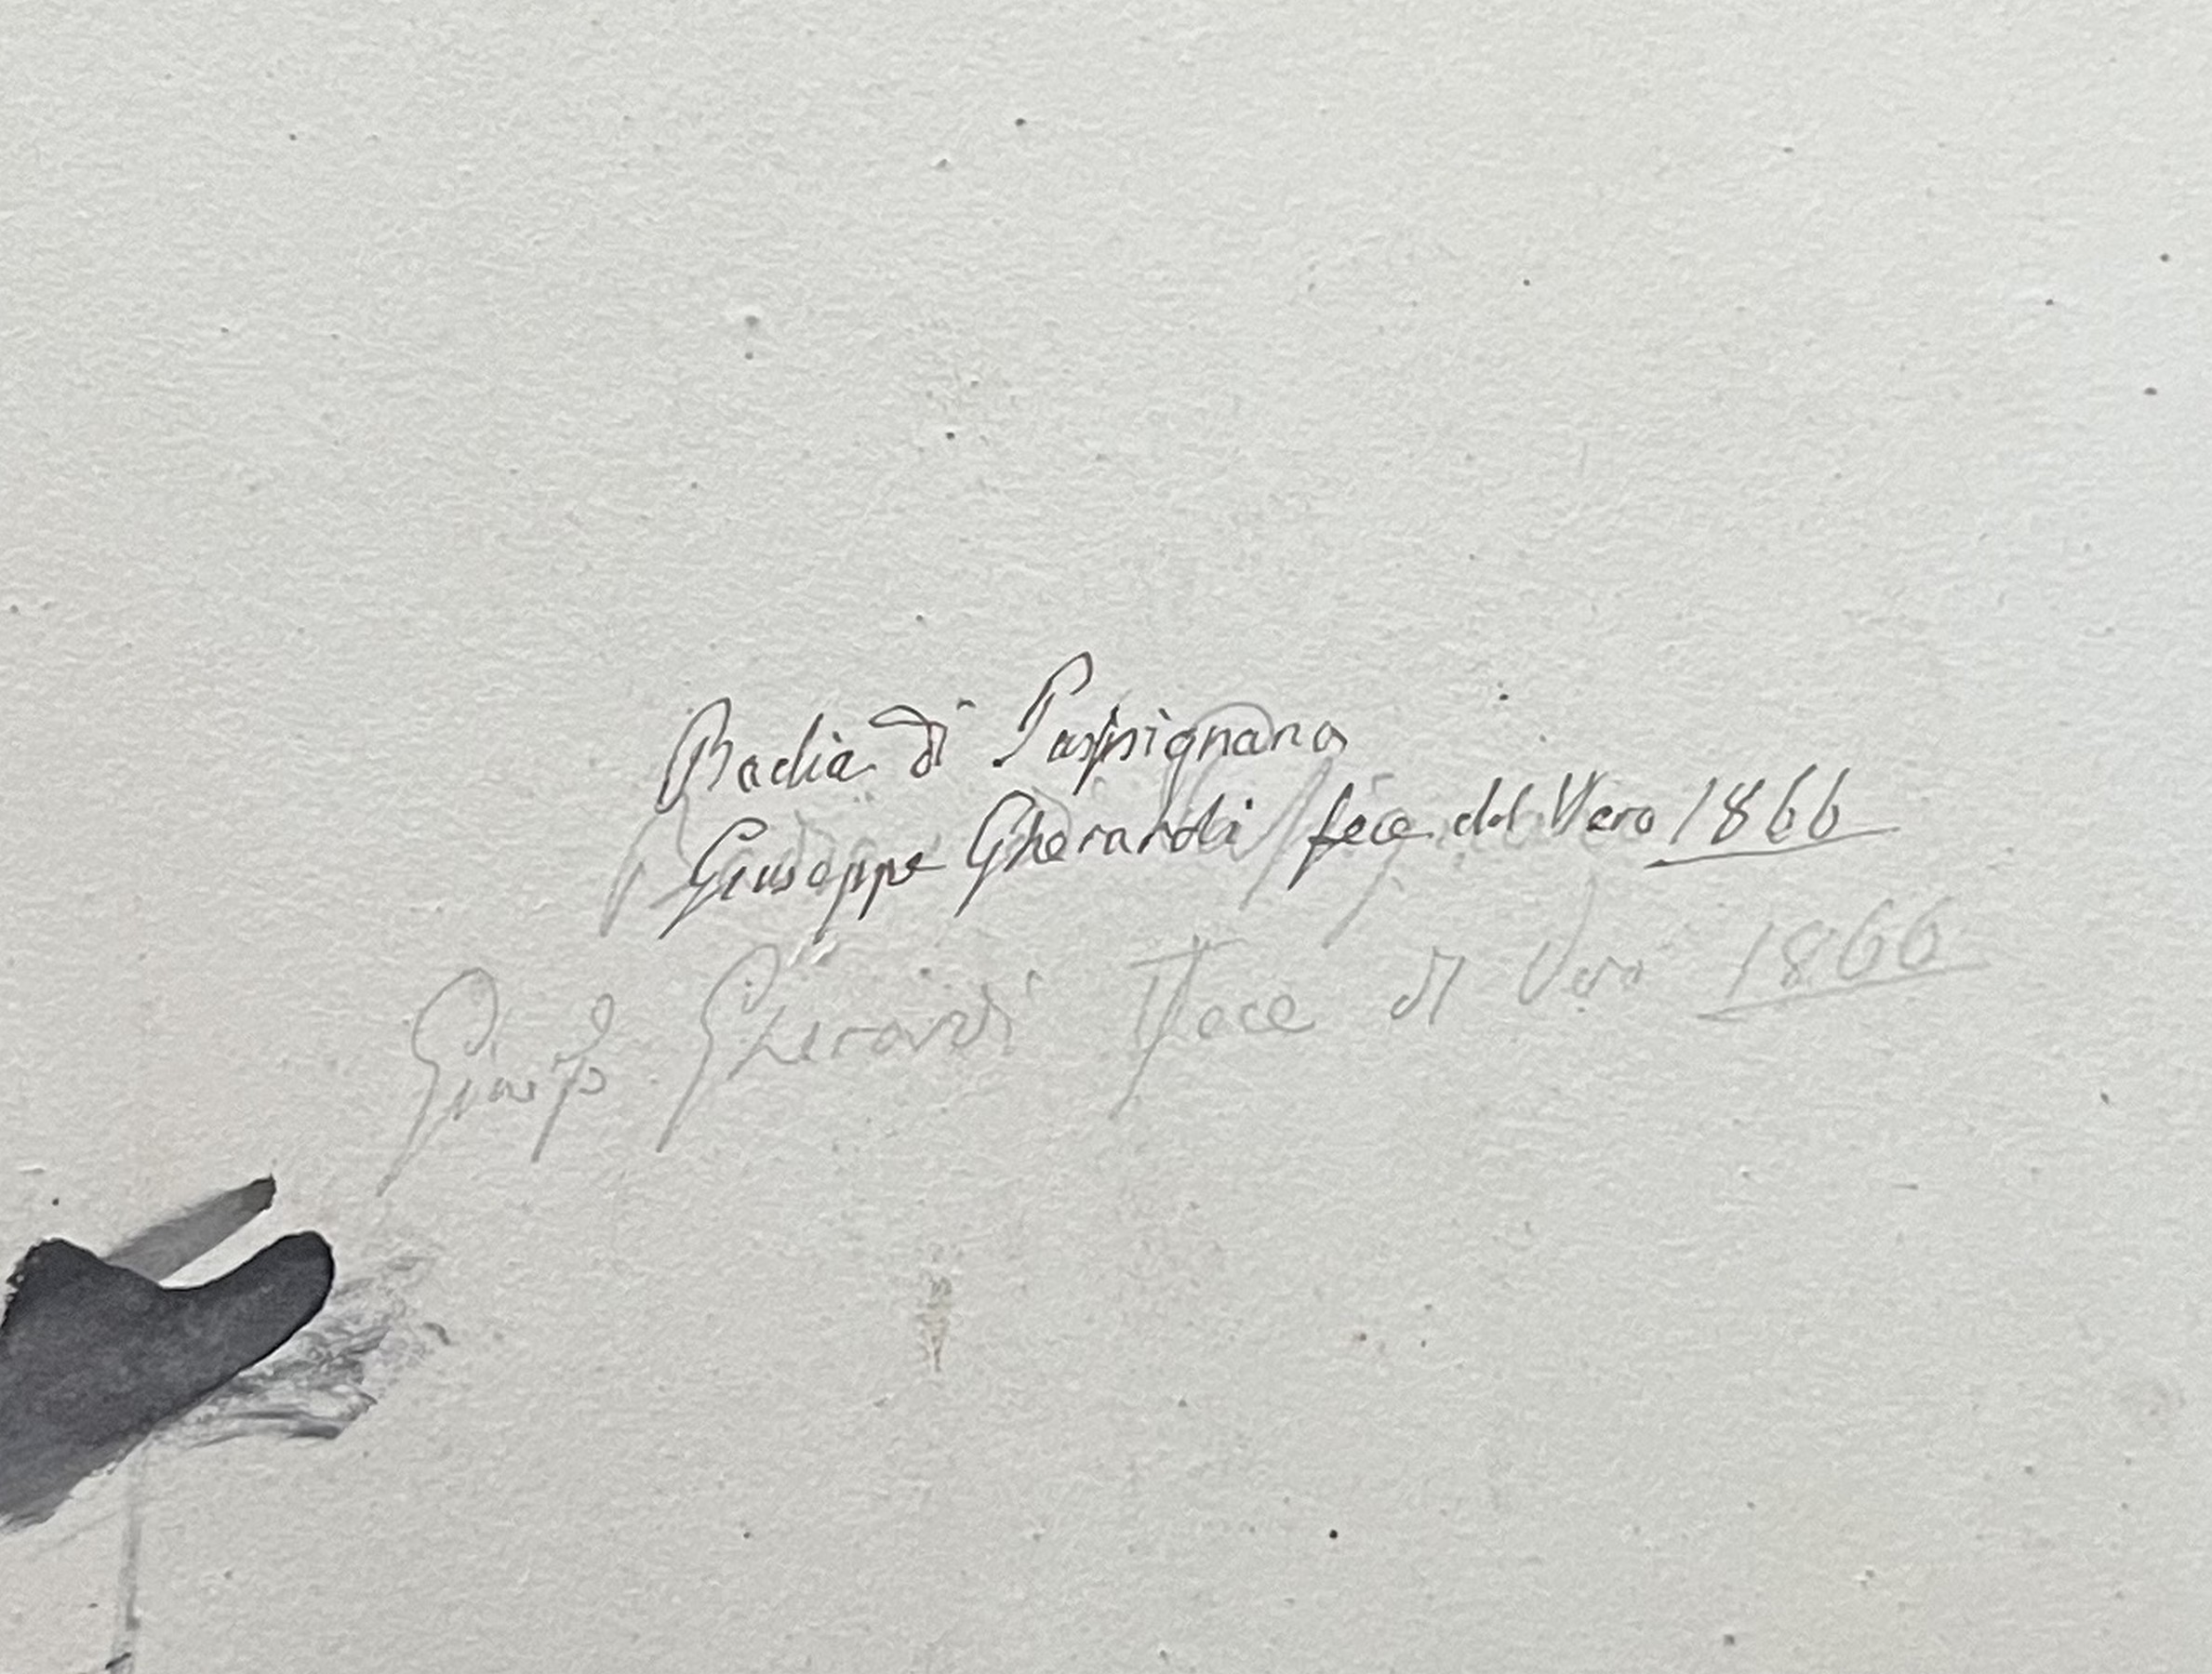 Badia di Paspignano
Giuseppe Gherardi fece dal Vero 1866
Gherardi Fece dl Vero 1866